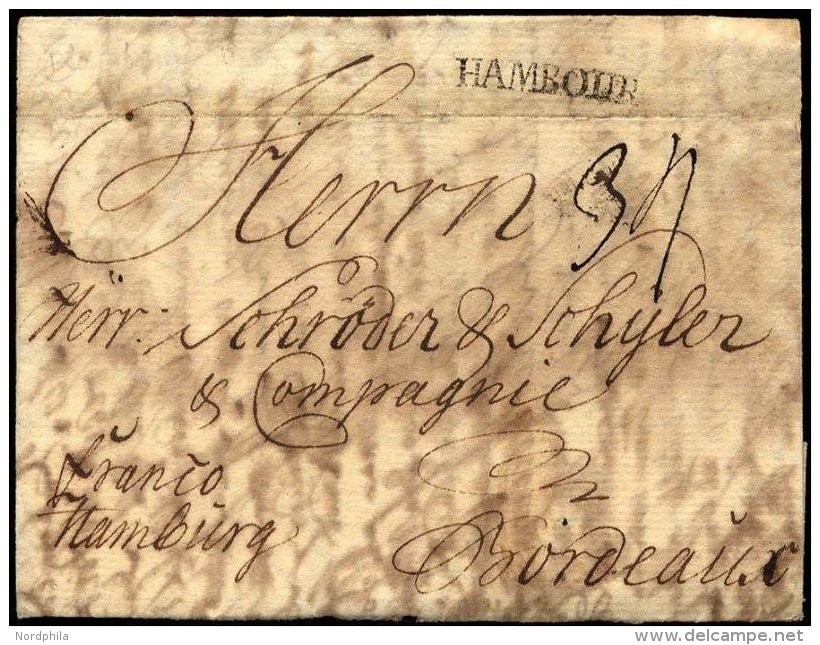 HAMBOUR
Herrn 34
Herr: Schröder & Schÿler
& Compagnie
Franco
Hamburg
Bordeaux
Nordphila
delcampe.net